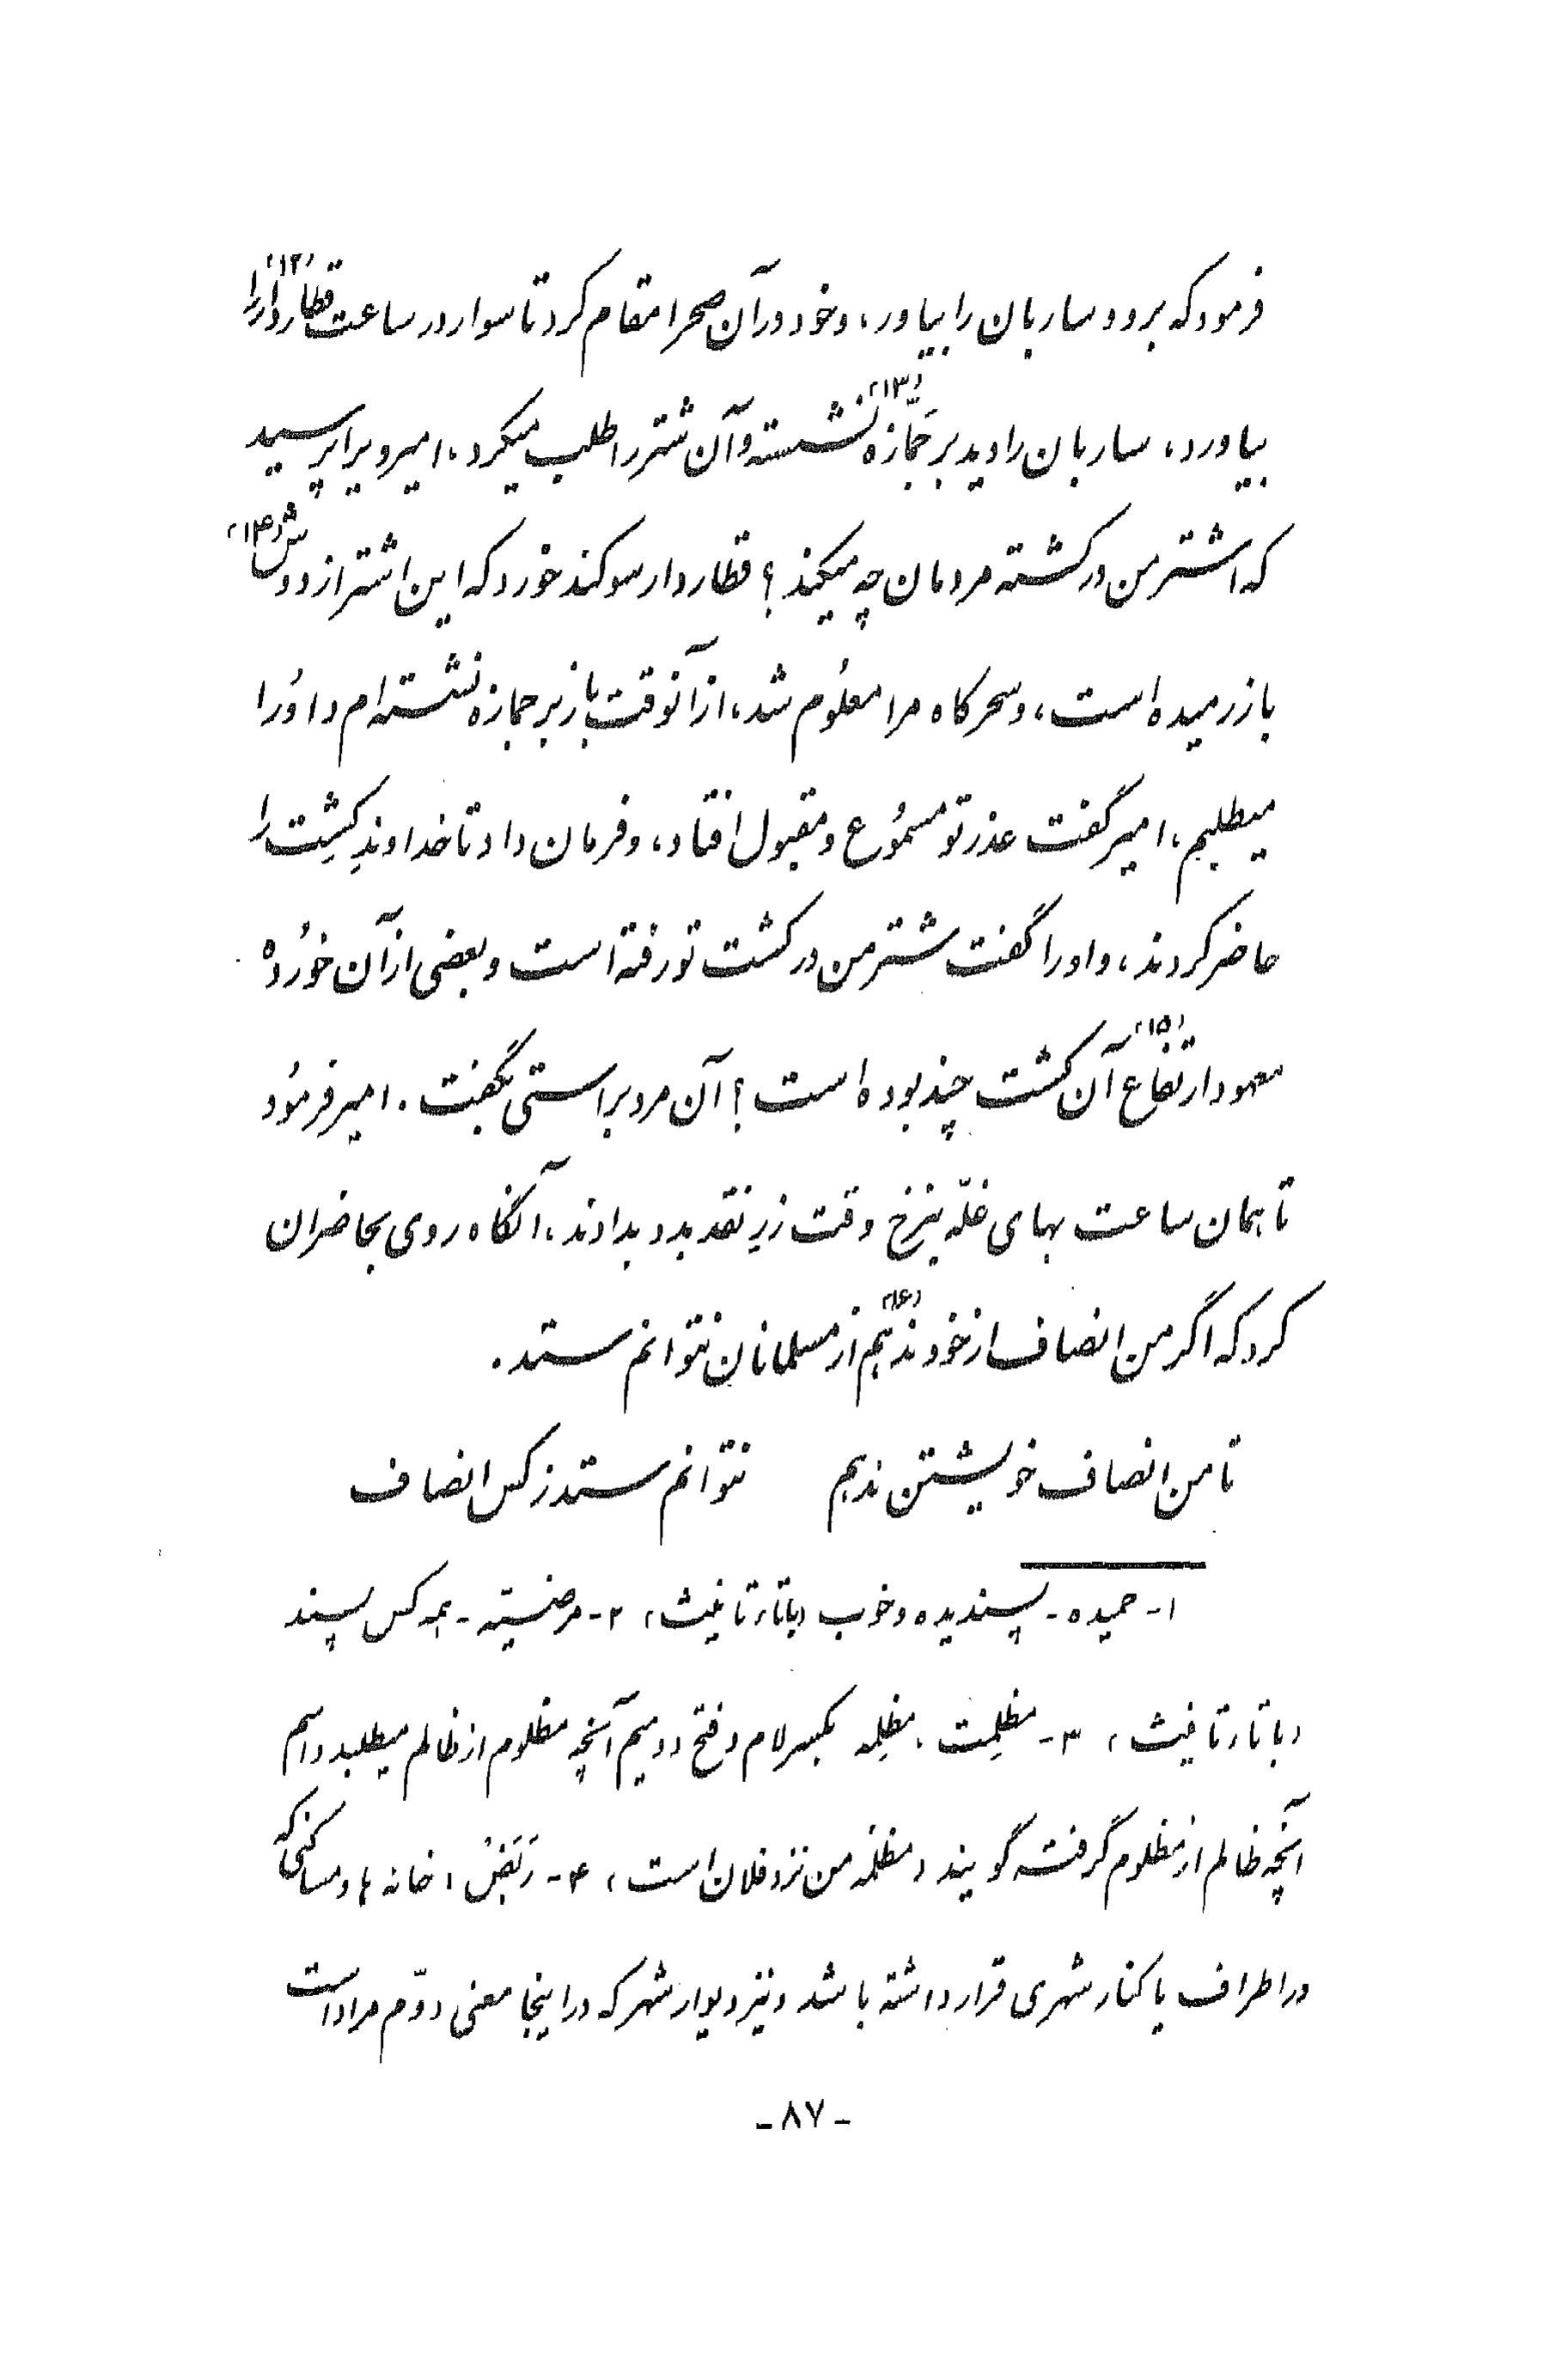 فرمود که برو و ساربان را بیاور، و خود در آن صحرا مقام کرد تا سوار در ساعت قطاردار را (۱۲)
بیاورد، ساربان را دید بر جَمّازه (۱۳) نشسته و آن شتر را طلب میکرد، امیر ویرا پرسید
که اشتر من در کشته مردمان چه میکند؟ قطاردار سوگند خورد که این اشتر از دوش (۱۴)
باز رمیده است، و سحرگاه مرا معلُوم شد، از آنوقت باز بر جمازه نشسته‌ام و اوُرا
میطلبم، امیر گفت عذر تو مسمُوع و مقبول افتاد، و فرمان داد تا خداوندِ کِشِت را
حاضر کردند، و او را گفت شتر من در کشت تو رفته است و بعضی از آن خوُرده
معهود ارتفاع (۱۵) آن کشت چند بوده است؟ آن مرد براستی بگفت. امیر فرمُود
تا همان ساعت بهای غلّه بنرخ وقت زرِ نقد بدو بدادند، آنگاه روی بحاضران
کرد که اگر من انصاف از خود ندهم (۱۶) از مسلمانان نتوانم ستد.
تا من انصاف خویشتن ندهم    نتوانم ستد ز کس انصاف
۱- حمیده - پسندیده و خوب (با تاء تانیث) ۲- مرضیّته - همه کس پسند
(با تاء تانیث) ۳- مظلِمت، مظلِمه بکسر لام و فتح دو میم آنچه مظلوم از ظالم میطلبد و اسم
آنچه ظالم از مظلوم گرفته گویند (مظلمه من نزد فلان است) ۴- رَبَضْ، خانه‌ها و مساکنی که
در اطراف یا کنار شهری قرار داشته باشد و نیز دیوار شهر که در اینجا معنی دوّم مراد است
- ۸۷ -